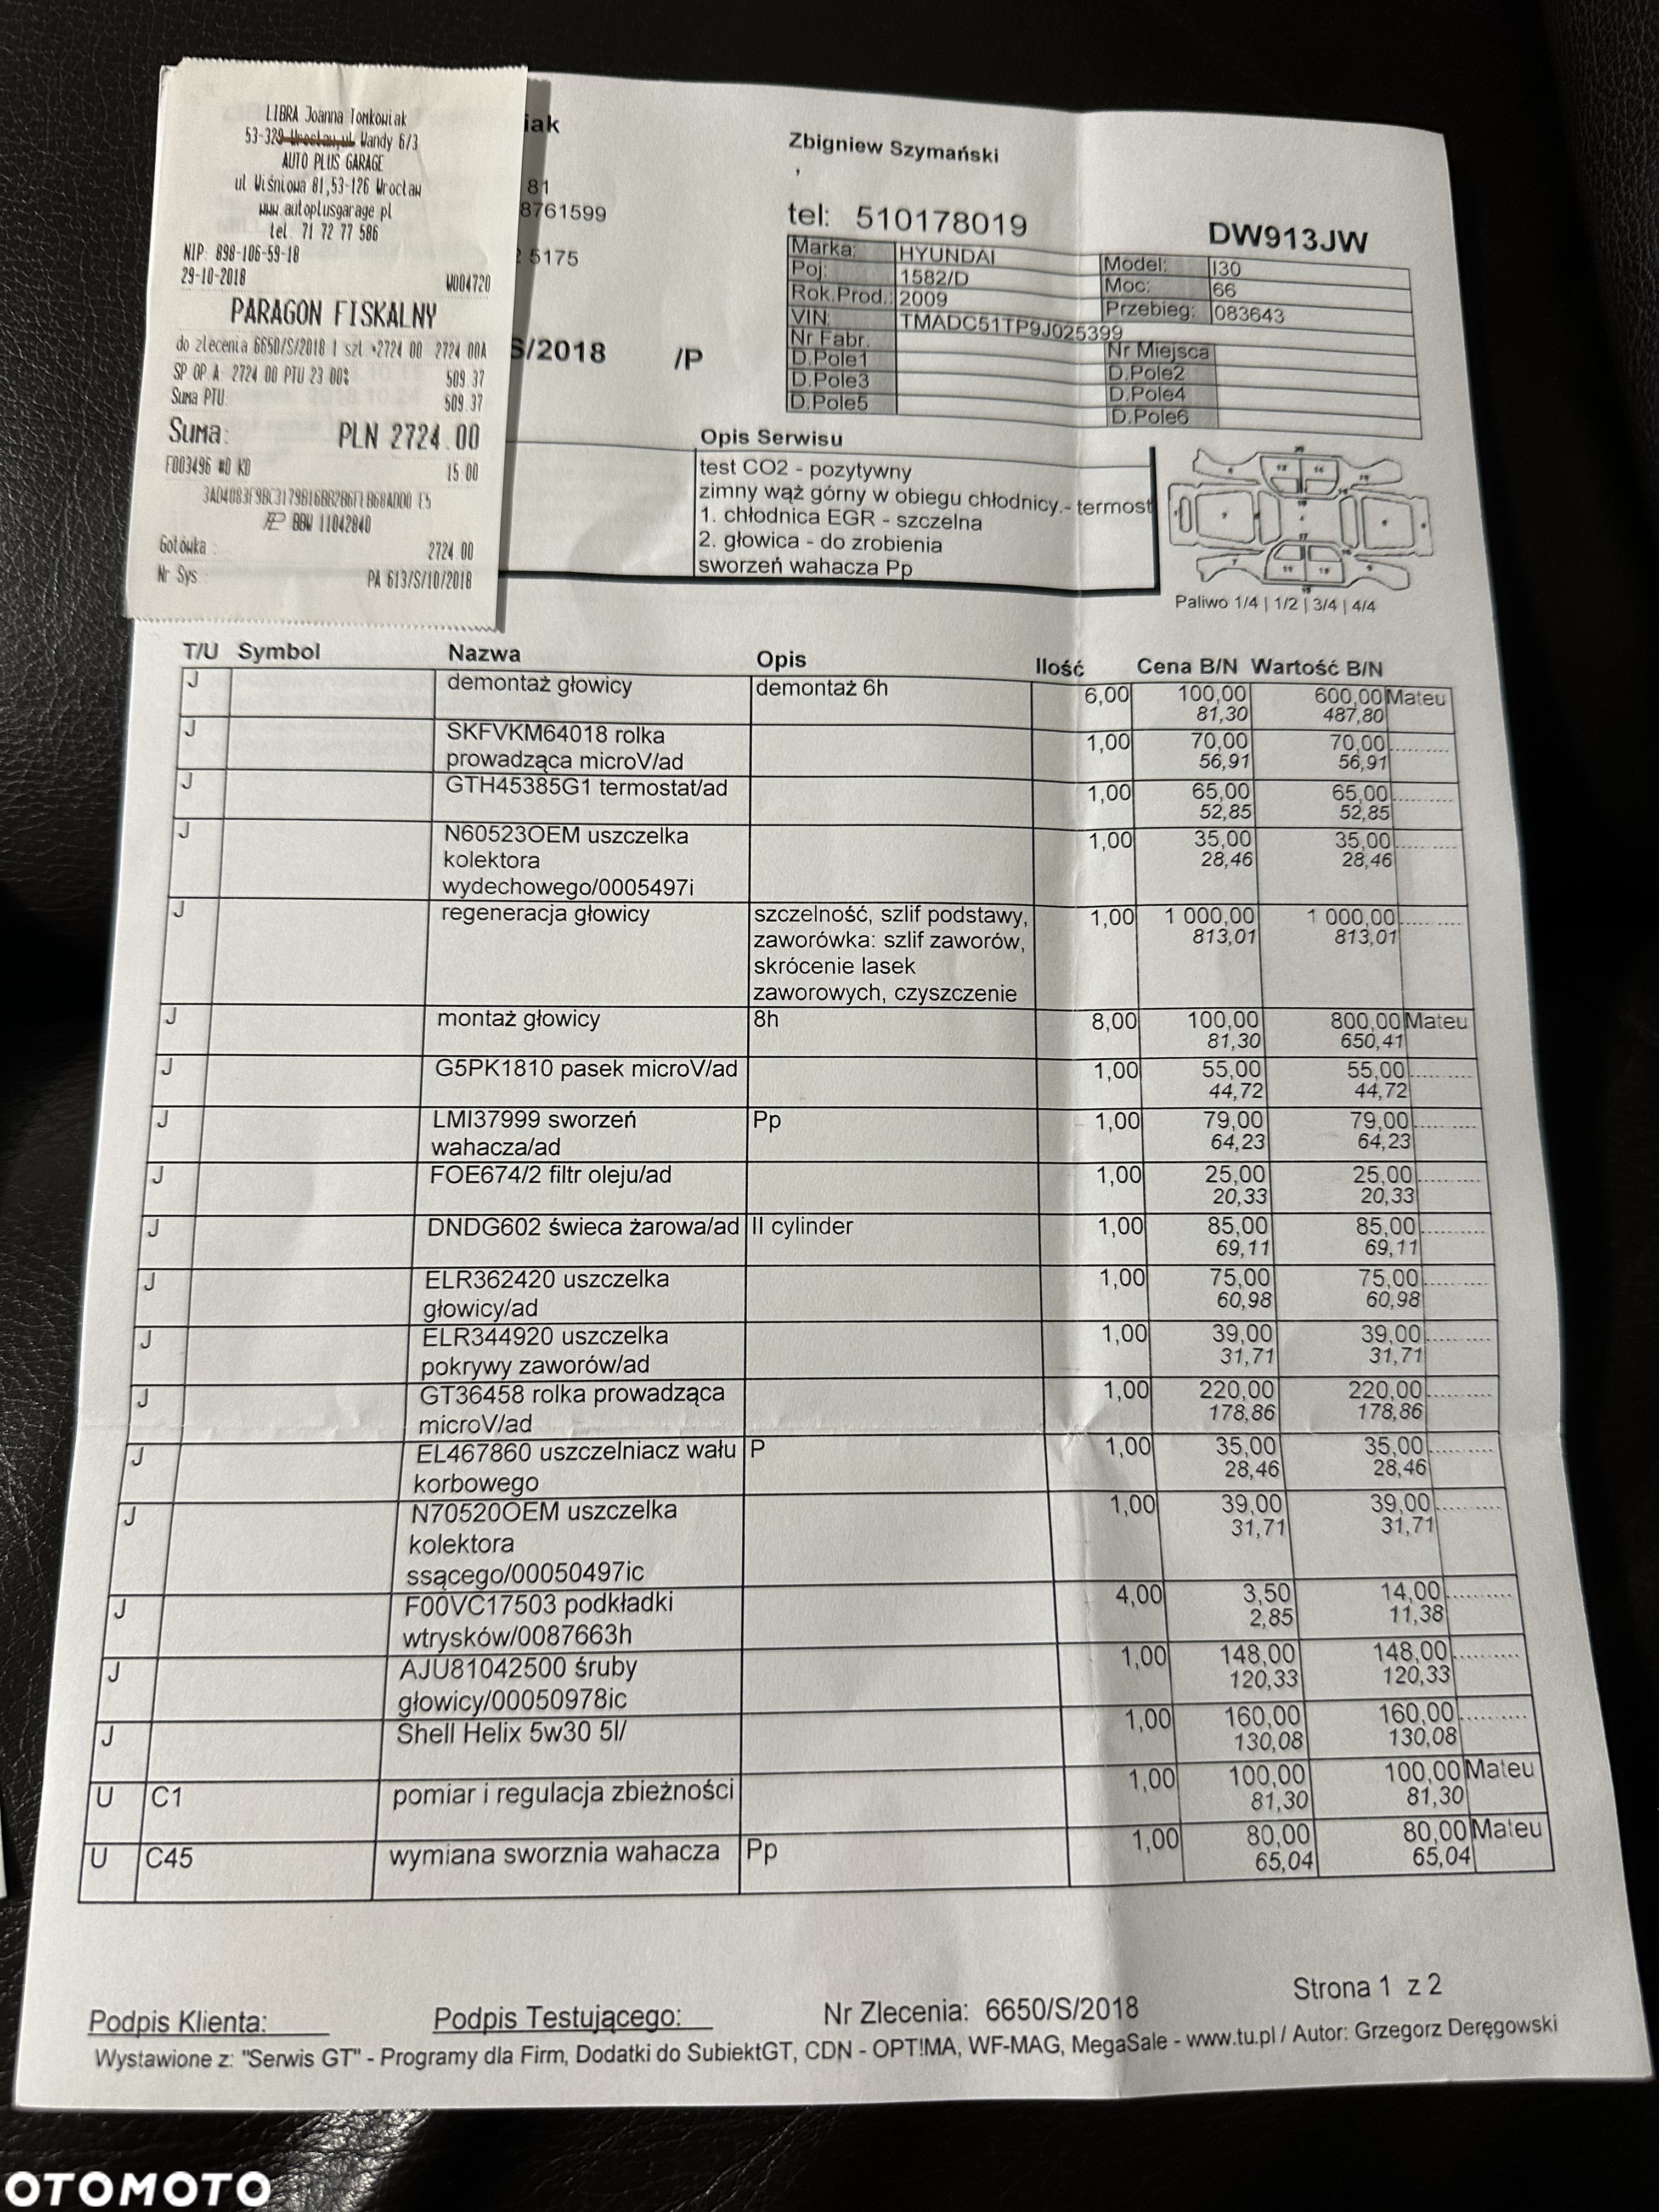 LIBRA Joanna Tomkowiak
53-329 Wrocław,ul. Wandy 6/3
AUTO PLUS GARAGE
ul Wiśniowa 81,53-126 Wrocław
www.autoplusgarage.pl
tel. 71 72 77 586
NIP: 898-106-59-18
29-10-2018 W004720
PARAGON FISKALNY
do zlecenia 6650/S/2018 1 szt *2724 00 2724 00A
SP OP A: 2724 00 PTU 23 00% 509.37
Suma PTU: 509.37
Suma: PLN 2724.00
F003496 #0 K0 15:00
BBW 11042840
Gotówka: 2724.00
Nr Sys.: PA 613/S/10/2018
iak
81
8761599
5175
S/2018 /P
Zbigniew Szymański
,
tel: 510178019
DW913JW
Marka: HYUNDAI Model: I30
Poj: 1582/D Moc: 66
Rok.Prod.: 2009 Przebieg: 083643
VIN: TMADC51TP9J025399
Nr Fabr. Nr Miejsca
D.Pole1 D.Pole2
D.Pole3 D.Pole4
D.Pole5 D.Pole6
Opis Serwisu
test CO2 - pozytywny
zimny wąż górny w obiegu chłodnicy.- termost
1. chłodnica EGR - szczelna
2. głowica - do zrobienia
sworzeń wahacza Pp
Paliwo 1/4 | 1/2 | 3/4 | 4/4
T/U Symbol Nazwa Opis Ilość Cena B/N Wartość B/N
J demontaż głowicy demontaż 6h 6,00 100,00 600,00 Mateu
81,30 487,80
J SKFVKM64018 rolka 1,00 70,00 70,00
prowadząca microV/ad 56,91 56,91
J GTH45385G1 termostat/ad 1,00 65,00 65,00
52,85 52,85
J N60523OEM uszczelka 1,00 35,00 35,00
kolektora 28,46 28,46
wydechowego/0005497i
J regeneracja głowicy szczelność, szlif podstawy, 1,00 1 000,00 1 000,00
zaworówka: szlif zaworów, 813,01 813,01
skrócenie lasek
zaworowych, czyszczenie
J montaż głowicy 8h 8,00 100,00 800,00 Mateu
81,30 650,41
J G5PK1810 pasek microV/ad 1,00 55,00 55,00
44,72 44,72
J LMI37999 sworzeń Pp 1,00 79,00 79,00
wahacza/ad 64,23 64,23
J FOE674/2 filtr oleju/ad 1,00 25,00 25,00
20,33 20,33
J DNDG602 świeca żarowa/ad II cylinder 1,00 85,00 85,00
69,11 69,11
J ELR362420 uszczelka 1,00 75,00 75,00
głowicy/ad 60,98 60,98
J ELR344920 uszczelka 1,00 39,00 39,00
pokrywy zaworów/ad 31,71 31,71
J GT36458 rolka prowadząca 1,00 220,00 220,00
microV/ad 178,86 178,86
J EL467860 uszczelniacz wału P 1,00 35,00 35,00
korbowego 28,46 28,46
J N70520OEM uszczelka 1,00 39,00 39,00
kolektora 31,71 31,71
ssącego/00050497ic
J F00VC17503 podkładki 4,00 3,50 14,00
wtrysków/0087663h 2,85 11,38
J AJU81042500 śruby 1,00 148,00 148,00
głowicy/00050978ic 120,33 120,33
J Shell Helix 5w30 5l/ 1,00 160,00 160,00
130,08 130,08
U C1 pomiar i regulacja zbieżności 1,00 100,00 100,00 Mateu
81,30 81,30
U C45 wymiana sworznia wahacza Pp 1,00 80,00 80,00 Mateu
65,04 65,04
Strona 1 z 2
Podpis Klienta: Podpis Testującego: Nr Zlecenia: 6650/S/2018
Wystawione z: "Serwis GT" - Programy dla Firm, Dodatki do SubiektGT, CDN - OPT!MA, WF-MAG, MegaSale - www.tu.pl / Autor: Grzegorz Deręgowski
OTOMOTO